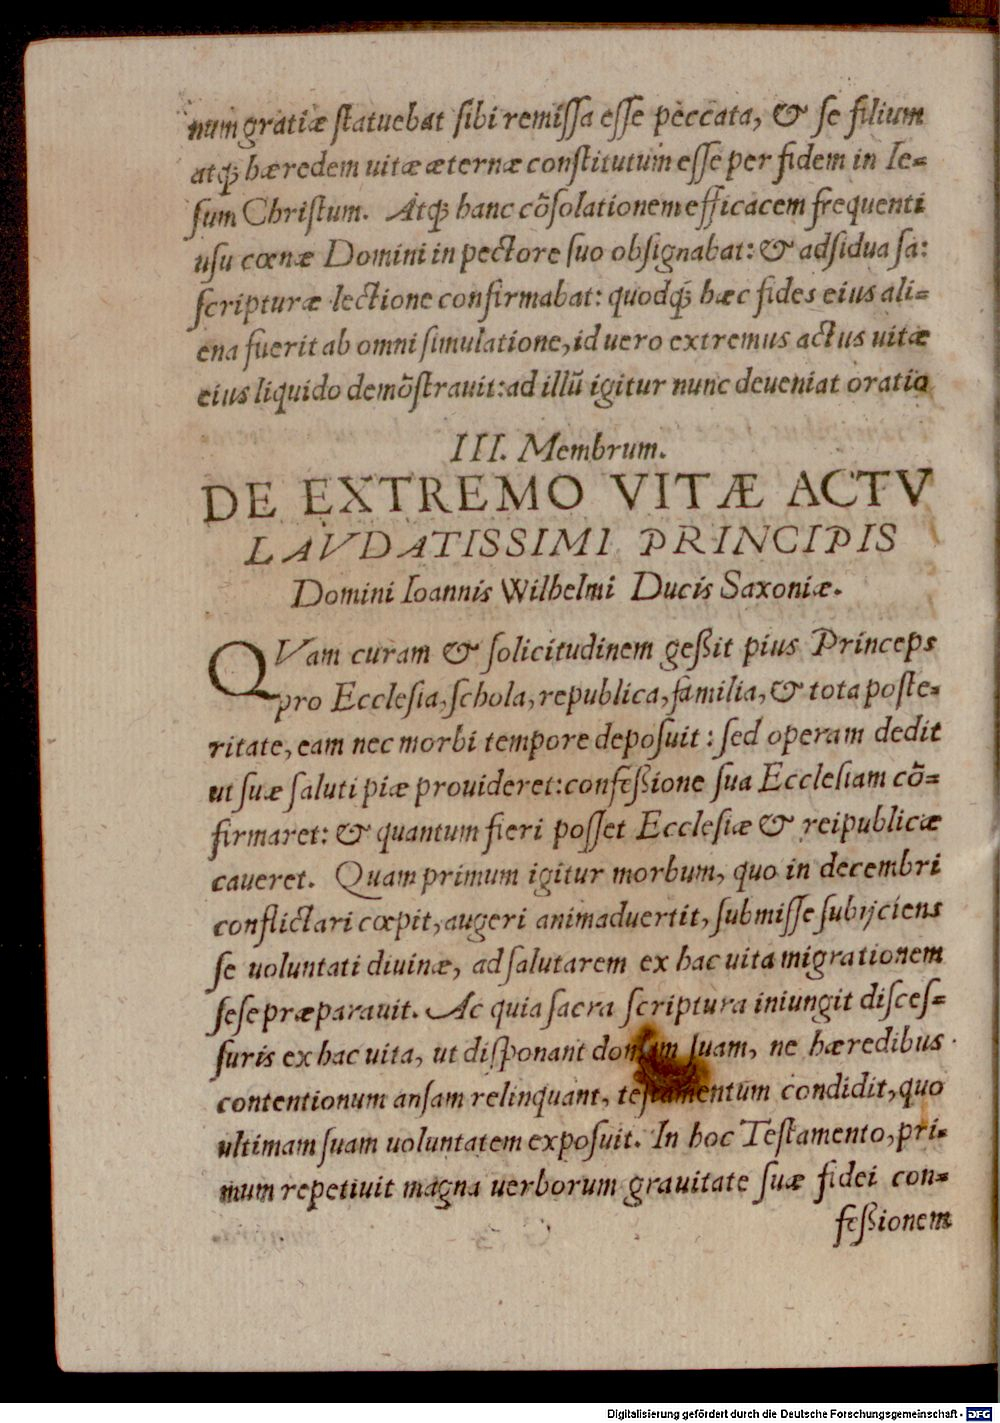 num gratiæ ſtatuebat ſibi remiſſa eſſe peccata, & ſe filium
atq́ꝫ hæredem uitæ æternæ conſtitutum eſſe per fidem in Ie=
ſum Chriſtum. Atq́ꝫ hanc cõſolationem efficacem frequenti
uſu cœnæ Domini in pectore ſuo obſignabat: & adſidua ſa:
ſcripturæ lectione confirmabat: quodq́ꝫ hæc fides eius ali=
ena fuerit ab omni ſimulatione, id uero extremus actus uitæ
eius liquido demõſtrauit: ad illũ igitur nunc deueniat oratio
III. Membrum.
DE EXTREMO VITÆ ACTV
LAVDATISSIMI PRINCIPIS
Domini Ioannis Wilhelmi Ducis Saxoniæ.
QVam curam & ſolicitudinem geßit pius Princeps
pro Eccleſia, ſchola, republica, familia, & tota poſte=
ritate, eam nec morbi tempore depoſuit: ſed operam dedit
ut ſuæ ſaluti piæ prouideret: confeßione ſua Eccleſiam cõ=
firmaret: & quantum fieri poſſet Eccleſiæ & reipublicæ
caueret. Quam primum igitur morbum, quo in decembri
conflictari cœpit, augeri animaduertit, ſubmiſſe ſubijciens
ſe uoluntati diuinæ, ad ſalutarem ex hac uita migrationem
ſeſe præparauit. Ac quia ſacra ſcriptura iniungit diſceſ=
ſuris ex hac uita, ut diſponant domum ſuam, ne hæredibus
contentionum anſam relinquant, teſtamentum condidit, quo
ultimam ſuam uoluntatem expoſuit. In hoc Teſtamento, pri=
mum repetiuit magna uerborum grauitate ſuæ fidei con=
feßionem
Digitalisierung gefördert durch die Deutsche Forschungsgemeinschaft - DFG